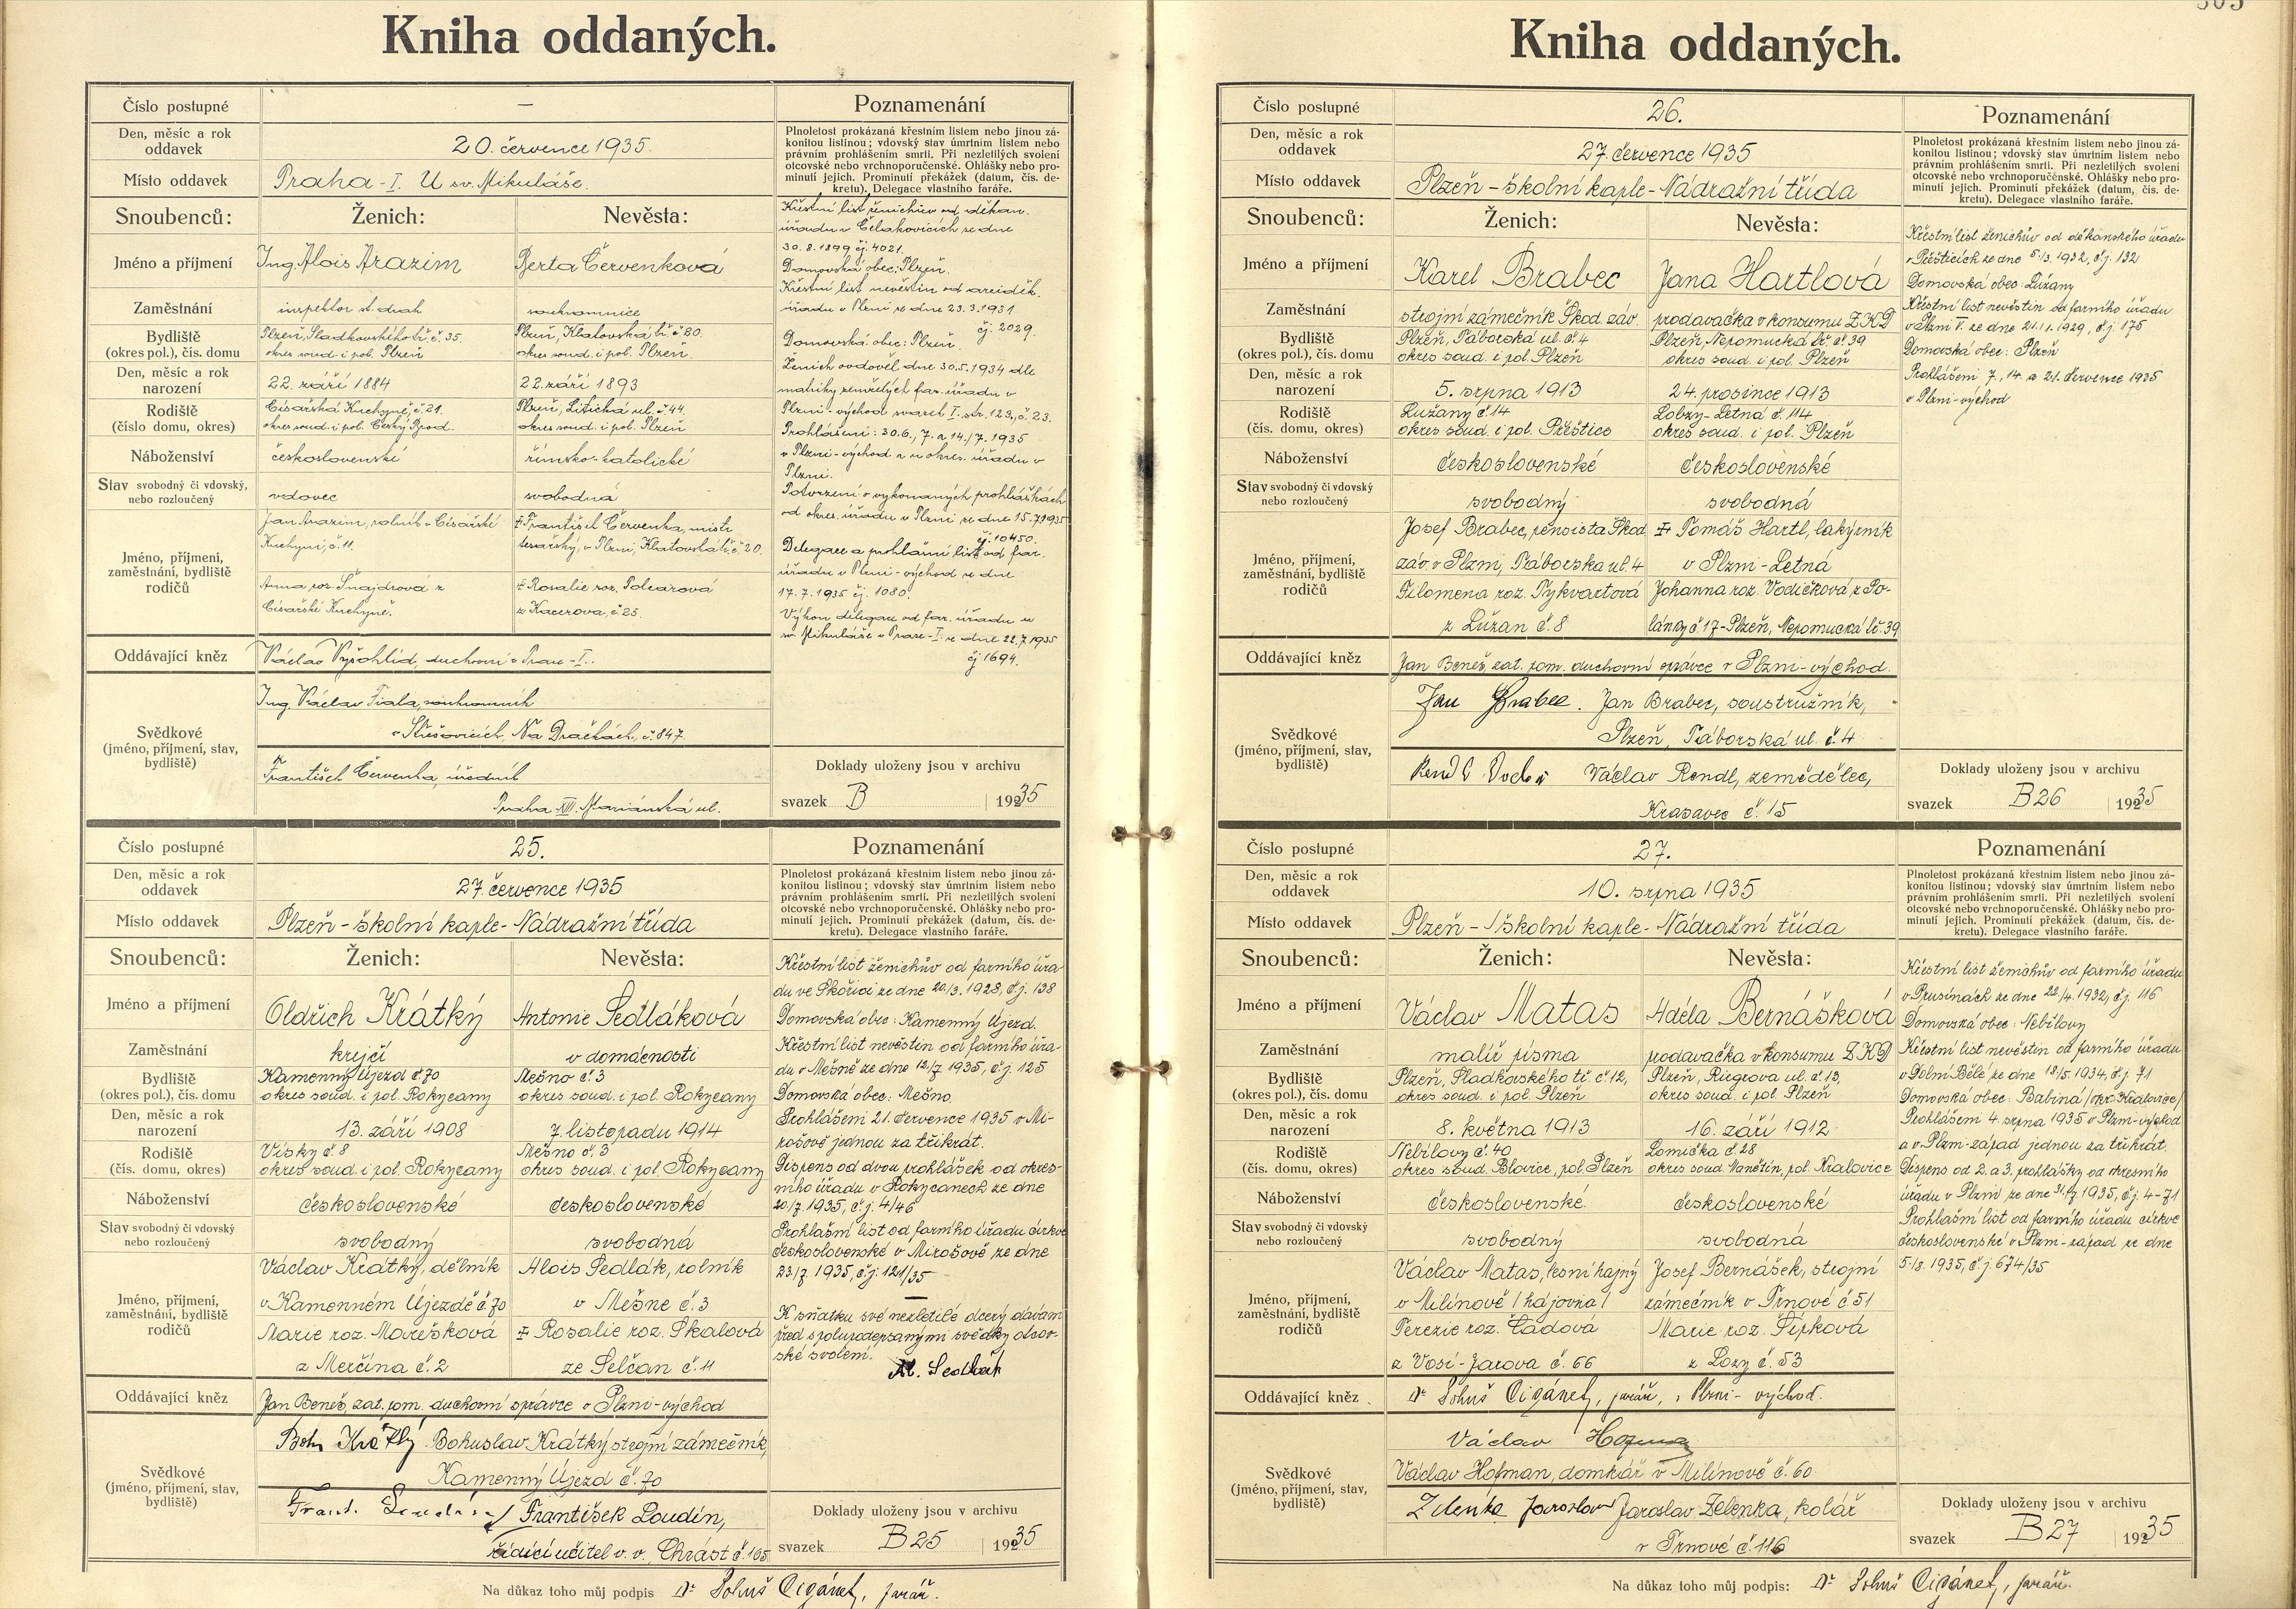 Kniha oddaných.
Číslo postupné —
Poznamenání
Den, měsíc a rok oddavek 20. července 1935.
Plnoletost prokázaná křestním listem nebo jinou zá-
konitou listinou; vdovský stav úmrtním listem nebo
právním prohlášením smrti. Při nezletilých svolení
otcovské nebo vrchnoporučenské. Ohlášky nebo pro-
minutí jejich. Prominutí překážek (datum, čís. de-
kretu). Delegace vlastního faráře.
Místo oddavek Praha - I. U sv. Mikuláše.
Snoubenců: Ženich: Nevěsta:
Jméno a příjmení Ing. Alois Arazim Berta Červenková
Zaměstnání inspektor st. drah soukromnice
Bydliště Plzeň, Sladkovského tř. č. 35. Plzeň, Klatovská tř. č 80.
(okres pol.), čís. domu okres soud. i pol. Plzeň okres soud. i pol. Plzeň.
Den, měsíc a rok narození 22. září 1884 22. září 1893
Rodiště Císařská Kuchyně, č. 21. Plzeň, Litická ul. č. 44.
(číslo domu, okres) okres soud. i pol. Český Brod. okres soud. i pol. Plzeň
Náboženství československé římsko-katolické
Stav svobodný či vdovský, nebo rozloučený vdovec svobodná
Jméno, příjmení, zaměstnání, bydliště rodičů
Jan Arazim, rolník v Císařské
Kuchyni, č. 11.
Anna roz. Šnajdrová z
Císařské Kuchyně.
František Červenka, mistr
tesařský, v Plzni, Klatovská tř. č 20.
Rosalie roz. Polcarová
z Kacerova, č 25.
Oddávající kněz Václav Vyšohlíd, duchovní v Praze - I.
Svědkové
(jméno, příjmení, stav,
bydliště)
Ing. Václav Fiala, soukromník
v Střešovicích, Na Dračkách, č. 847.
František Červenka, úředník
Praha XIII. Mariánská ul.
Křestní list ženichův od děkan.
úřadu v Čelakovicích ze dne
30. 8. 1899 čj. 4021.
Domovská obec: Plzeň.
Křestní list nevěstin od arciděk.
úřadu v Plzni ze dne 23. 3. 1931
čj. 2029.
Domovská obec: Plzeň.
Ženich ovdověl dne 30. 5. 1934 dle
matriky zemřelých far. úřadu v
Plzni - východ svazek I. str. 123, č. 23.
Prohlášeni: 30. 6., 7. a 14./7. 1935
v Plzni-východ a u okres. úřadu v
Plzni.
Potvrzení o vykonaných prohláškách
od okres. úřadu v Plzni ze dne 15. 7. 1935
čj. 10450.
Delegace a prohlášní list od far.
úřadu v Plzni - východ ze dne
17. 7. 1935 čj. 1080.
Výkon delegace od far. úřadu u
sv. Mikuláše v Praze - I. ze dne 22. 7. 1935
čj 1694.
Doklady uloženy jsou v archivu
svazek B 1935
Číslo postupné 25.
Poznamenání
Den, měsíc a rok oddavek 27. července 1935
Plnoletost prokázaná křestním listem nebo jinou zá-
konitou listinou; vdovský stav úmrtním listem nebo
právním prohlášením smrti. Při nezletilých svolení
otcovské nebo vrchnoporučenské. Ohlášky nebo pro-
minutí jejich. Prominutí překážek (datum, čís. de-
kretu). Delegace vlastního faráře.
Místo oddavek Plzeň - školní kaple - Nádražní třída
Snoubenců: Ženich: Nevěsta:
Jméno a příjmení Oldřich Krátký Antonie Sedláková
Zaměstnání krejčí v domácnosti
Bydliště Kamenný Újezd č 70 Mešno č 3
(okres pol.), čís. domu okres soud. i pol. Rokycany okres soud. i pol. Rokycany
Den, měsíc a rok narození 13. září 1908 7. listopadu 1914
Rodiště Vísky č 8 Mešno č. 3
(čís. domu, okres) okres soud. i pol. Rokycany okres soud. i pol Rokycany
Náboženství československé československé
Stav svobodný či vdovský nebo rozloučený svobodný svobodná
Jméno, příjmení, zaměstnání, bydliště rodičů
Václav Krátký, dělník
v Kamenném Újezdě č 70
Marie roz. Marešková
z Merčína č. 2
Alois Sedlák, rolník
v Mešne č. 3
Rosalie roz. Skalová
ze Selčan č. 11
Oddávající kněz Jan Beneš, zat. pom. duchovní správce v Plzni-východ
Svědkové
(jméno, příjmení, stav,
bydliště)
Boh Krátký Bohuslav Krátký, strojní zámečník,
Kamenný Újezd č. 70
Frant. Loudín František Loudín,
řídící učitel v. v. Chrást č. 165
Křestní list ženichův od farního úřa-
du ve Skořici ze dne 20./3. 1928, č. j. 138
Domovská obec: Kamenný Újezd.
Křestní list nevěstin od farního úřa-
du v Mešně ze dne 12/7 1935, č. j. 125
Domovská obec: Mešno.
Prohlášeni 21. července 1935 v Mi-
rošově jednou za třikrát.
Dispens od dvou prohlášek od okres-
ního úřadu v Rokycanech ze dne
20/7. 1935, č. j. 4/46
Prohlašní list od farního úřadu církve
československé v Mirošově ze dne
23./7. 1935, č. j. 121/35
K sňatku své nezletilé dcery dávám
před spolupodepsanými svědky otcov-
ské svolení.
Al. Sedlák
Doklady uloženy jsou v archivu
svazek B 25 1935
Na důkaz toho můj podpis Dr Bohuš Cigánek, farář.
Kniha oddaných.
Číslo postupné 26.
Poznamenání
Den, měsíc a rok oddavek 27. července 1935
Plnoletost prokázaná křestním listem nebo jinou zá-
konitou listinou; vdovský stav úmrtním listem nebo
právním prohlášením smrti. Při nezletilých svolení
otcovské nebo vrchnoporučenské. Ohlášky nebo pro-
minutí jejich. Prominutí překážek (datum, čís. de-
kretu). Delegace vlastního faráře.
Místo oddavek Plzeň - školní kaple - Nádražní třída
Snoubenců: Ženich: Nevěsta:
Jméno a příjmení Karel Brabec Jana Hartlová
Zaměstnání strojní zámečník Škod. záv. prodavačka v konsumu ZKD
Bydliště Plzeň, Táborská ul. č. 4 Plzeň, Nepomucká tř. č. 39
(okres pol.), čís. domu okres soud. i pol. Plzeň okres soud. i pol. Plzeň
Den, měsíc a rok narození 5. srpna 1913 24. prosince 1913
Rodiště Lužany č. 14 Lobzy-Letná č. 114
(čís. domu, okres) okres soud. i pol. Přeštice okres soud. i pol. Plzeň
Náboženství československé československé
Stav svobodný či vdovský nebo rozloučený svobodný svobodná
Jméno, příjmení, zaměstnání, bydliště rodičů
Josef Brabec, pensista Škod
záv. v Plzni, Táborská ul. 4
Filomena roz. Tykvartová
z Lužan č. 8
Tomáš Hartl, lakýrník
v Plzni - Letná
Johanna roz. Vodičková z Po-
lánky č 17 - Plzeň, Nepomucká tř. 39
Oddávající kněz Jan Beneš, zat. pom. duchovní správce v Plzni-východ.
Svědkové
(jméno, příjmení, stav,
bydliště)
Jan Brabec. Jan Brabec, soustružník,
Plzeň, Táborská ul. č. 4
Rendl Václav Rendl, zemědělec,
Krasavec č. 15
Křestní list ženichův od děkanského úřadu
v Přešticích ze dne 5./3. 1932, č. j. 132
Domovská obec: Lužany
Křestní list nevěstin od farního úřadu
v Plzni V. ze dne 21. 1. 1929, č. j. 175
Domovská obec: Plzeň
Prohlášeni 7., 14. a 21. července 1935
v Plzni - východ
Doklady uloženy jsou v archivu
svazek B 26 1935
Číslo postupné 27.
Poznamenání
Den, měsíc a rok oddavek 10. srpna 1935
Plnoletost prokázaná křestním listem nebo jinou zá-
konitou listinou; vdovský stav úmrtním listem nebo
právním prohlášením smrti. Při nezletilých svolení
otcovské nebo vrchnoporučenské. Ohlášky nebo pro-
minutí jejich. Prominutí překážek (datum, čís. de-
kretu). Delegace vlastního faráře.
Místo oddavek Plzeň - školní kaple - Nádražní třída
Snoubenců: Ženich: Nevěsta:
Jméno a příjmení Václav Matas Adéla Bernášková
Zaměstnání malíř písma prodavačka v konsumu ZKD
Bydliště Plzeň, Sladkovského tř. č. 12, Plzeň, Riegrova ul. č. 13,
(okres pol.), čís. domu okres soud. i pol. Plzeň okres soud. i pol. Plzeň
Den, měsíc a rok narození 8. května 1913 16. září 1912
Rodiště Nebílovy č. 40 Lomička č. 28
(čís. domu, okres) okres soud. Blovice, pol. Plzeň okres soud. Manětín, pol. Kralovice
Náboženství československé československé
Stav svobodný či vdovský nebo rozloučený svobodný svobodná
Jméno, příjmení, zaměstnání, bydliště rodičů
Václav Matas, lesní hajný
v Milínově /hájovna/
Terezie roz. Čadová
z Vosí - Jarova č. 66
Josef Bernášek, strojní
zámečník v Trnové č 51
Marie roz. Šípková
z Lozy č. 53
Oddávající kněz Dr Bohuš Cigánek, farář, v Plzni - východ.
Svědkové
(jméno, příjmení, stav,
bydliště)
Václav Hofman
Václav Hofman, domkář v Milínově č. 60
Zelenka Jaroslav Jaroslav Zelenka, kolář
v Trnové č. 116
Křestní list ženichův od farního úřadu
v Prusinách ze dne 22./4. 1932, č. j. 116
Domovská obec: Nebílovy
Křestní list nevěstin od farního úřadu
v Dolní Bělé ze dne 18/5. 1934, č. j. 71
Domovská obec: Babina /okr. Kralovice/
Prohlášeni 4. srpna 1935 v Plzni-východ
a v Plzni-západ jednou za třikrát.
Dispens od 2. a 3. prohlášky od okresního
úřadu v Plzni ze dne 31./7. 1935, č. j. 4-71
Prohlašní list od farního úřadu církve
československé v Plzni - západ ze dne
5./8. 1935, č. j. 674/35
Doklady uloženy jsou v archivu
svazek B 27 1935
Na důkaz toho můj podpis: Dr Bohuš Cigánek, farář.